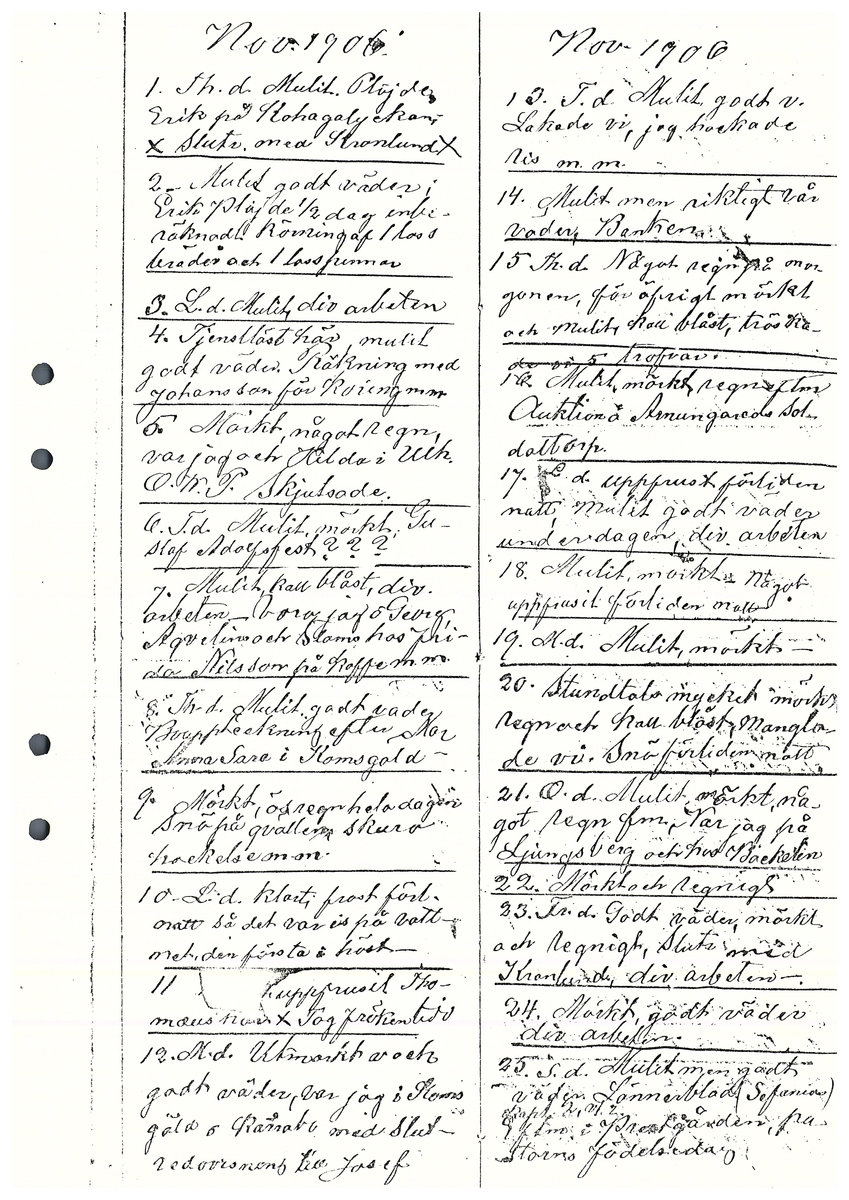 Nov. 1906
1. Th. d. Mulit. Plöjde
Erik på Kohagalyckan,
X Slutr. med Kronlund X
2. Mulit godt väder;
Erik Plöjde 1/2 dag inbe-
räknadt körning af 1 lass
bräder och 1 lass pinnar
3. L. d. Mulit, div arbeten
4. Tjenstlöst här, mulit
godt väder. Räkning med
Johansson för Körning mm
5. Mörkt, något regn,
var jag och Hilda i Ulh.
O. W. P. Skjutsade.
6. T. d. Mulit, mörkt, Gu-
staf Adolfsfest ? ? ?
7. Mulit, kall blåst, div.
arbeten — voro jag o Georg
Aqvelin och Stoms hos Fri-
da Nilsson på kaffe m.m.
8. Th. d. Mulit godt väder
Bouppteckning efter Mor
Anna Sara i Komsgöld —
9. Mörkt, ösregn hela dagen
Snö på qvällen, skuro
hackelse m m.
10. L. d. klart, frost förl.
natt så det var is på vatt-
net, den första i höst —
11 uppfrusit Tho-
mæus här X Tog fröken
12. M. d. Utmärkt
godt väder, var jag i Koms
göld o med Slut-
redovisning till Josef
Nov. 1906
13. T. d. Mulit, godt v.
Lakade vi, jag hackade
ris m. m.
14. Mulit men riktigt vår
väder, Banken
15 Th. d. Något regn på mor
gonen, för öfrigt mörkt
och mulit, kall blåst, tröska-
de vi 5 trafvar.
16. Mulit, mörkt, regn eftm
Auktion å Arnungareds Sol-
dattorp.
17. L. d. uppfrust förliden
natt, mulit godt väder
under dagen, div. arbeten
18. Mulit, mörkt — Något
uppfrusit förliden natt
19. M. d. Mulit, mörkt —
20. Stundtals mycket mörkt,
regn och kall blåst, Mangla-
de vi. Snö förliden natt
21. O. d. Mulit, mörkt, nå-
got regn fm, Var jag på
Ljungsberg och hos Bäckelin
22. Mörkt och regnigt
23. Fr. d. Godt väder, mörkt
och regnigt, Slutr med
Kronlund, div. arbeten —.
24. Mörkt, godt väder
div arbeten.
25. S. d. Mulit men godt
väder. Lönnerblad (Sefanias)
eftm. i Prestgården, pa-
storns födelsedag